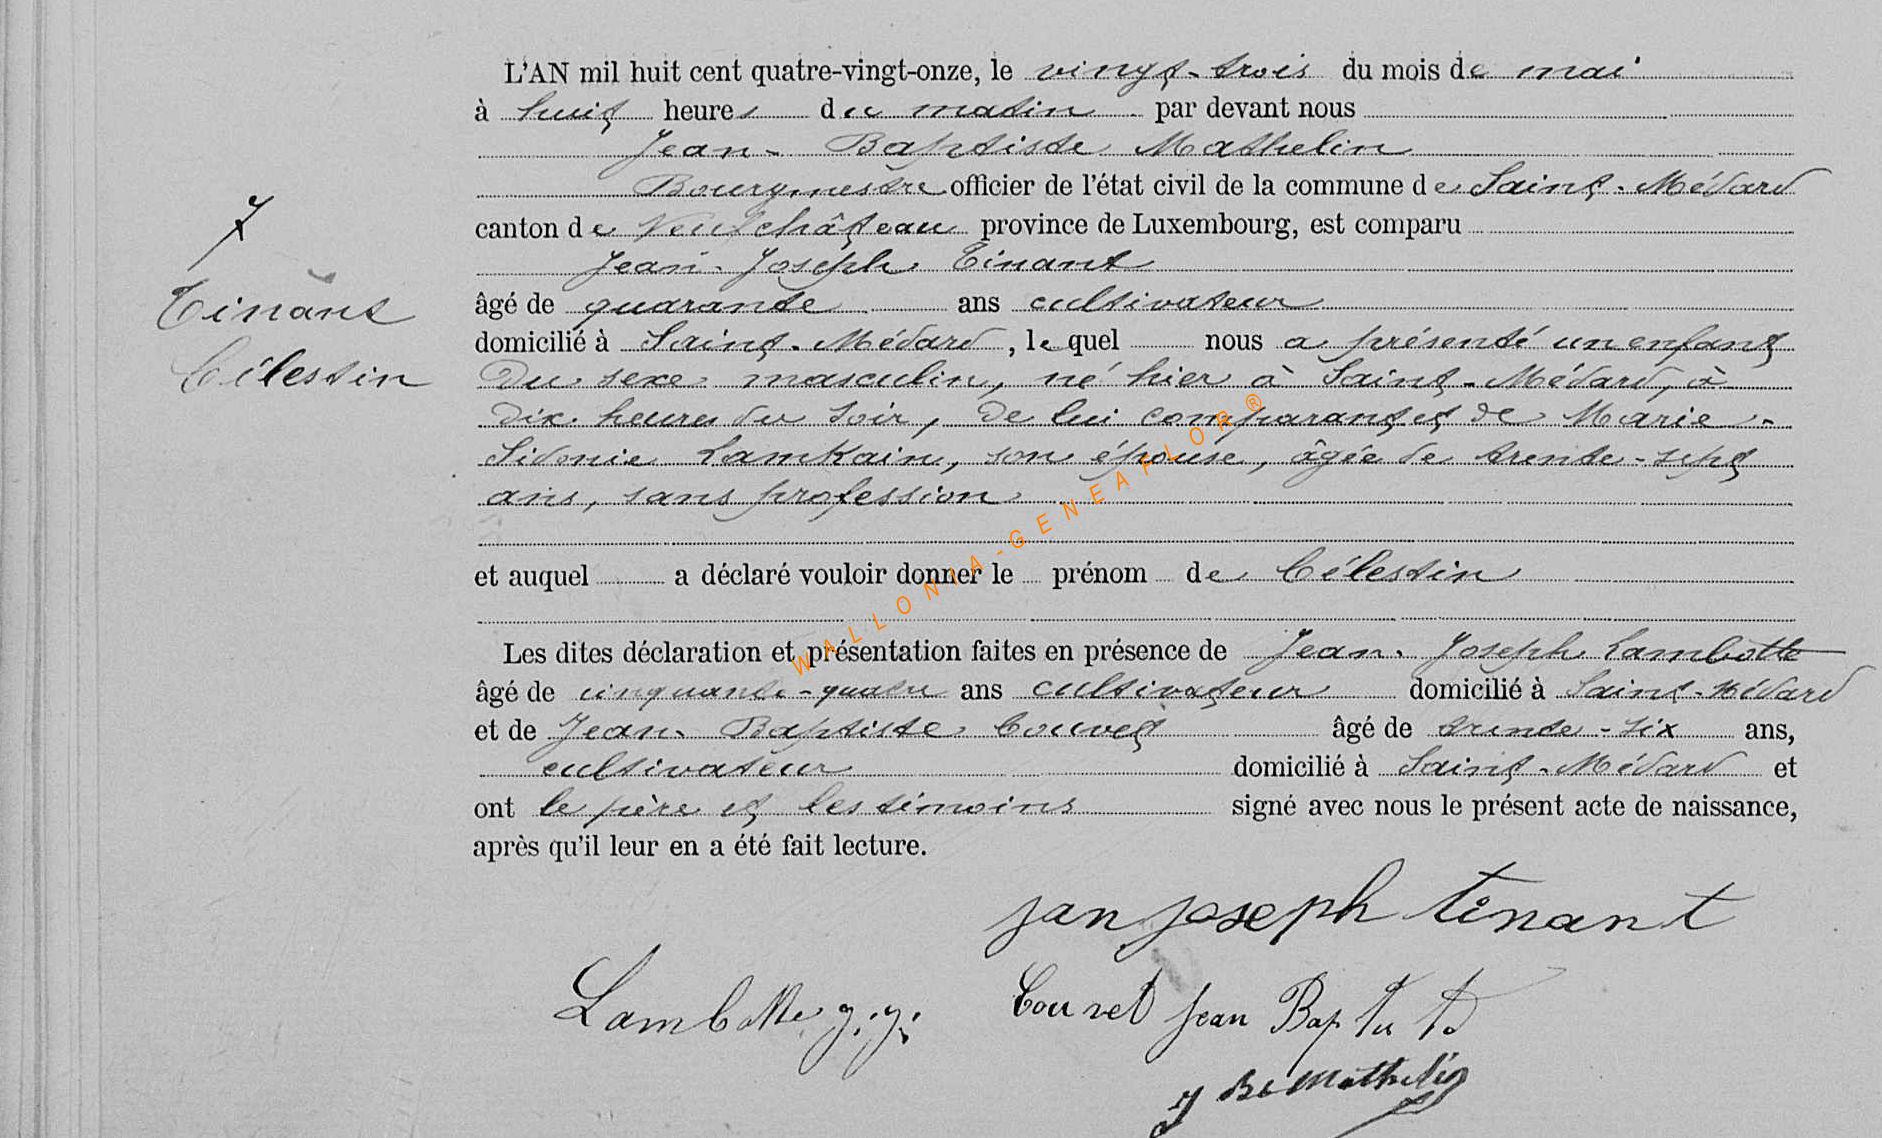 L'AN mil huit cent quatre-vingt-onze, le vingt-trois du mois de mai
à huit heures du matin par devant nous
Jean-Baptiste Mathelin
Bourgmestre officier de l'état civil de la commune de Saint-Médard
canton de Neufchâteau province de Luxembourg, est comparu
Jean-Joseph Tinant
âgé de quarante ans cultivateur
domicilié à Saint-Médard, lequel nous a présenté un enfant
du sexe masculin, né hier à Saint-Médard, à
dix heures du soir, de lui comparant et de Marie-
Sidonie Lamkain, son épouse, âgée de trente-sept
ans, sans profession
et auquel a déclaré vouloir donner le prénom de Célestin
Les dites déclaration et présentation faites en présence de Jean-Joseph Lambotte
âgé de cinquante-quatre ans cultivateur domicilié à Saint-Médard
et de Jean-Baptiste Couvet âgé de trente-six ans,
cultivateur domicilié à Saint-Médard et
ont le père et les témoins signé avec nous le présent acte de naissance,
après qu'il leur en a été fait lecture.
7
Tinant
Célestin
jan joseph tinant
Lambotte j.j.
Couvet Jean Baptiste
J Bte Mathelin
WALLONIA-GENEAFLOR ®